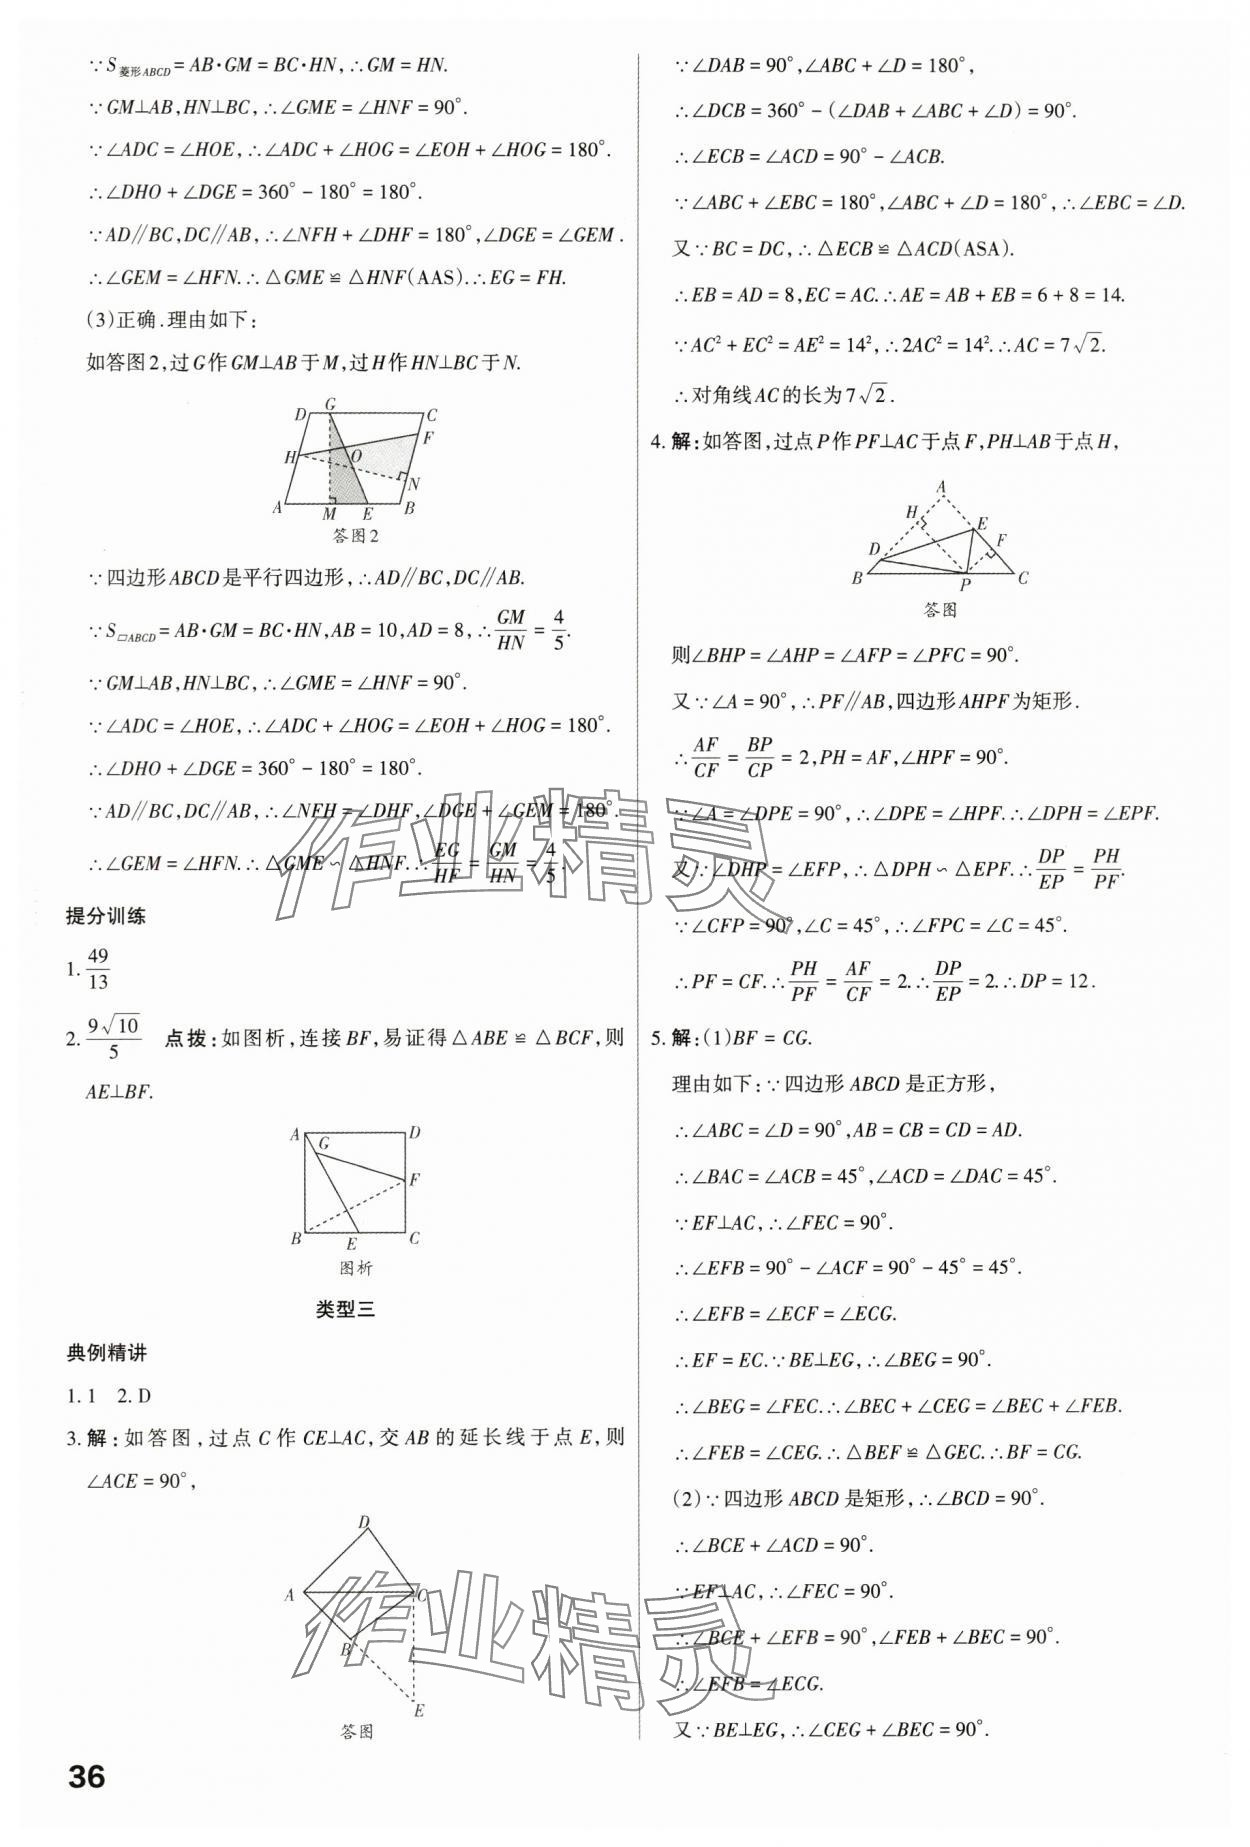 ∵S菱形ABCD=AB·GM=BC·HN,∴GM=HN.
∵GM⊥AB,HN⊥BC,∴∠GME=∠HNF=90°.
∵∠ADC=∠HOE,∴∠ADC+∠HOG=∠EOH+∠HOG=180°.
∴∠DHO+∠DGE=360°-180°=180°.
∵AD∥BC,DC∥AB,∴∠NFH+∠DHF=180°,∠DGE=∠GEM.
∴∠GEM=∠HFN.∴△GME≌△HNF(AAS).∴EG=FH.
(3)正确.理由如下:
如答图2,过G作GM⊥AB于M,过H作HN⊥BC于N.
D G C
F
H O
N
A M E B
答图2
∵四边形ABCD是平行四边形,∴AD∥BC,DC∥AB.
∵S▱ABCD=AB·GM=BC·HN,AB=10,AD=8,∴GM/HN=4/5.
∵GM⊥AB,HN⊥BC,∴∠GME=∠HNF=90°.
∵∠ADC=∠HOE,∴∠ADC+∠HOG=∠EOH+∠HOG=180°.
∴∠DHO+∠DGE=360°-180°=180°.
∵AD∥BC,DC∥AB,∴∠NFH=∠DHF,∠DGE+∠GEM=180°.
∴∠GEM=∠HFN.∴△GME∽△HNF.∴EG/HF=GM/HN=4/5.
提分训练
1. 49/13
2. 9√10/5 点拨:如图析,连接BF,易证得△ABE≌△BCF,则
AE⊥BF.
A G D
F
B E C
图析
类型三
典例精讲
1.1 2.D
3.解:如答图,过点C作CE⊥AC,交AB的延长线于点E,则
∠ACE=90°,
D
A C
B
E
答图
36
∵∠DAB=90°,∠ABC+∠D=180°,
∴∠DCB=360°-(∠DAB+∠ABC+∠D)=90°.
∴∠ECB=∠ACD=90°-∠ACB.
∵∠ABC+∠EBC=180°,∠ABC+∠D=180°,∴∠EBC=∠D.
又∵BC=DC,∴△ECB≌△ACD(ASA).
∴EB=AD=8,EC=AC.∴AE=AB+EB=6+8=14.
∵AC²+EC²=AE²=14²,∴2AC²=14².∴AC=7√2.
∴对角线AC的长为7√2.
4.解:如答图,过点P作PF⊥AC于点F,PH⊥AB于点H,
A
H E
D F
B P C
答图
则∠BHP=∠AHP=∠AFP=∠PFC=90°.
又∵∠A=90°,∴PF∥AB,四边形AHPF为矩形.
∴AF/CF=BP/CP=2,PH=AF,∠HPF=90°.
∵∠A=∠DPE=90°,∴∠DPE=∠HPF.∴∠DPH=∠EPF.
又∵∠DHP=∠EFP,∴△DPH∽△EPF.∴DP/EP=PH/PF.
∵∠CFP=90°,∠C=45°,∴∠FPC=∠C=45°.
∴PF=CF.∴PH/PF=AF/CF=2.∴DP/EP=2.∴DP=12.
5.解:(1)BF=CG.
理由如下:∵四边形ABCD是正方形,
∴∠ABC=∠D=90°,AB=CB=CD=AD.
∴∠BAC=∠ACB=45°,∠ACD=∠DAC=45°.
∵EF⊥AC,∴∠FEC=90°.
∴∠EFB=90°-∠ACF=90°-45°=45°.
∴∠EFB=∠ECF=∠ECG.
∴EF=EC.∵BE⊥EG,∴∠BEG=90°.
∴∠BEG=∠FEC.∴∠BEC+∠CEG=∠BEC+∠FEB.
∴∠FEB=∠CEG.∴△BEF≌△GEC.∴BF=CG.
(2)∵四边形ABCD是矩形,∴∠BCD=90°.
∴∠BCE+∠ACD=90°.
∵EF⊥AC,∴∠FEC=90°.
∴∠BCE+∠EFB=90°,∠FEB+∠BEC=90°.
∴∠EFB=∠ECG.
又∵BE⊥EG,∴∠CEG+∠BEC=90°.
作业精灵
作业精灵